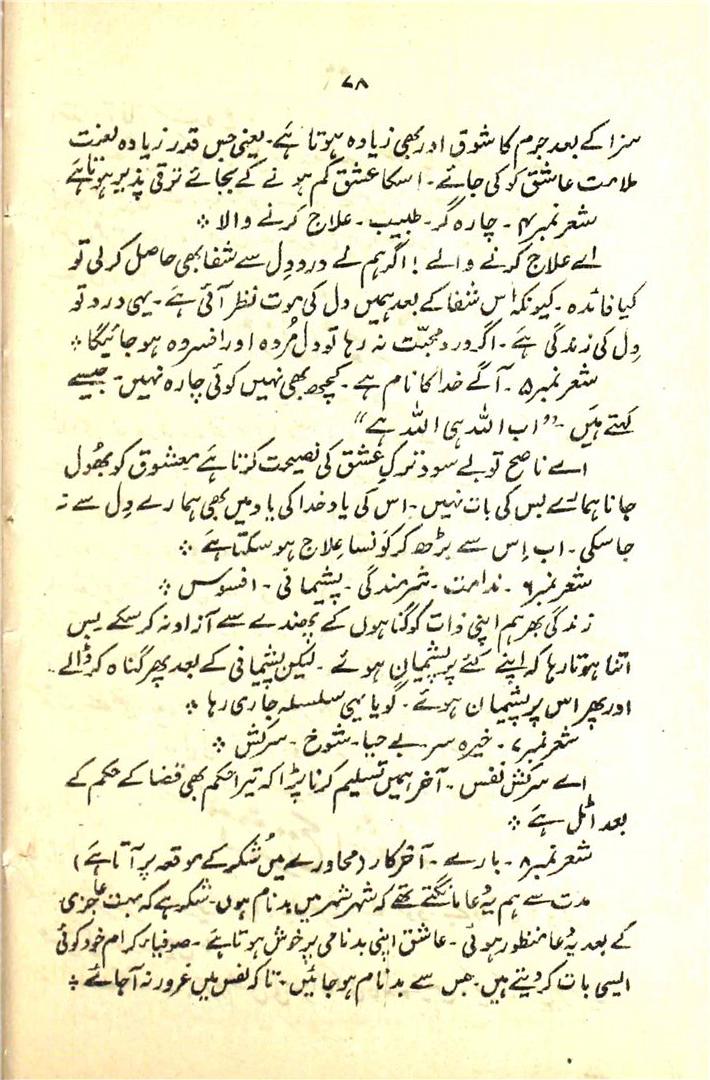 ۷۸
سزا کے بعد جرم کا شوق اور بھی زیادہ ہوتا ہے۔ یعنی جس قدر زیادہ لعنت
ملامت عاشق کو کی جائے۔ اسکا عشق کم ہونے کے بجائے ترقی پذیر ہوتا ہے
شعر نمبر ۴۔ چارہ گر۔ طبیب۔ علاج کرنے والا ⁘
اے علاج کرنے والے! اگر ہم نے دردِ دِل سے شفا بھی حاصل کر لی تو
کیا فائدہ۔ کیونکہ اس شفا کے بعد ہمیں دل کی موت نظر آئی ہے۔ یہی درد تو
دِل کی زندگی ہے۔ اگر دردِ محبّت نہ رہا تو دل مُردہ اور افسردہ ہو جائیگا ⁘
شعر نمبر ۵۔ آگے خدا کا نام ہے۔ کچھ بھی نہیں کوئی چارہ نہیں۔ جیسے
کہتے ہیں۔ "اب اللہ ہی اللہ ہے"
اے ناصح تو بے سود ترکِ عشق کی نصیحت کرتا ہے معشوق کو بھُول
جانا ہمارے بس کی بات نہیں۔ اس کی یاد خدا کی یاد میں بھی ہمارے دِل سے نہ
جا سکی۔ اب اِس سے بڑھ کر کونسا عِلاج ہو سکتا ہے ⁘
شعر نمبر ۶۔ ندامت۔ شرمندگی۔ پشیمانی۔ افسوس ⁘
زندگی بھر ہم اپنی ذات کو گناہوں کے پھندے سے آزاد نہ کر سکے بس
اتنا ہوتا رہا کہ اپنے کئے پر پشیمان ہوئے۔ لیکن پشیمانی کے بعد پھر گناہ کر ڈالے
اور پھر اس پر پشیمان ہوئے۔ گویا یہی سلسلہ جاری رہا ⁘
شعر نمبر ۷۔ خیرہ سر۔ بے حیا۔ شوخ۔ سرکش ⁘
اے سرکش نفس۔ آخر ہمیں تسلیم کرنا پڑا کہ تیرا حکم بھی قضا کے حکم کے
بعد اٹل ہے ⁘
شعر نمبر ۸۔ بارے۔ آخر کار (محاورے میں شُکر کے موقعہ پر آتا ہے)
مدت سے ہم یہ دُعا مانگتے تھے کہ شہر شہر میں بدنام ہوں۔ شکر ہے کہ بہت عاجزی
کے بعد یہ دُعا منظور ہوئی۔ عاشق اپنی بدنامی پر خوش ہوتا ہے۔ صوفیاء کرام خود کوئی
ایسی بات کر دیتے ہیں۔ جس سے بدنام ہو جائیں۔ تاکہ نفس میں غرور نہ آ جائے ⁘